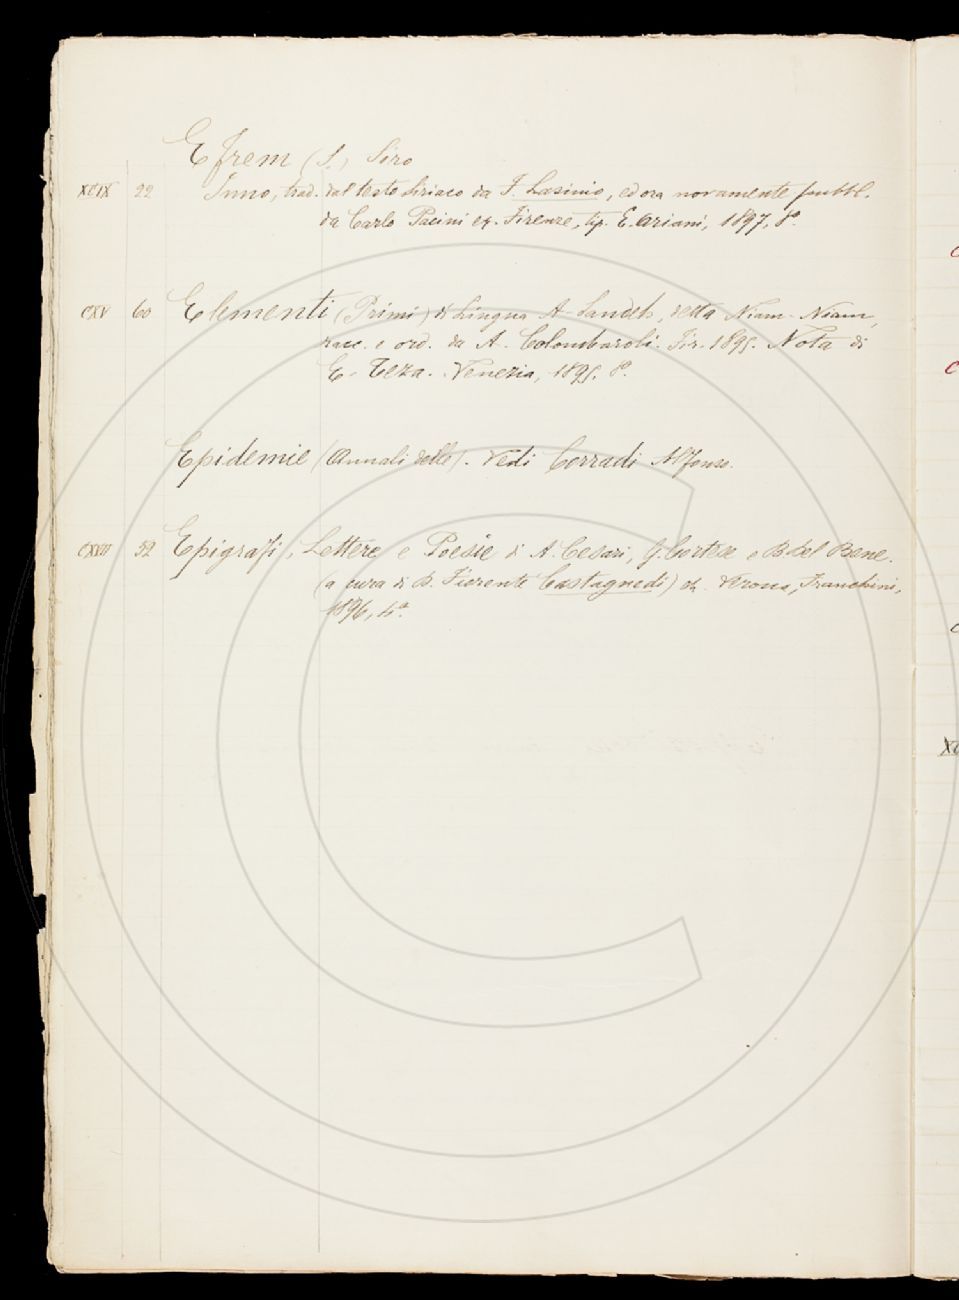 Efrem (S.) Siro
XCIX 22 Inno, trad. dal testo siriaco da F. Lasinio, ed ora novamente pubbl.
da Carlo Pacini ec. Firenze, tip. E. Ariani, 1897, 8°.
CXV 60 Elementi (Primi) di Lingua A-Sandeh, detta Niam-Niam,
racc. e ord. da A. Colombaroli. Fir. 1895. Nota di
E. Teza. Venezia, 1895. 8°.
Epidemie (Annali delle). Vedi Corradi Alfonso.
CXVII 52 Epigrafi, Lettere e Poesie di A. Cesari, G. Cortese e B. del Bene.
(a cura di D. Fiorente Castagnedi) ec. Verona, Franchini,
1896, 4°.